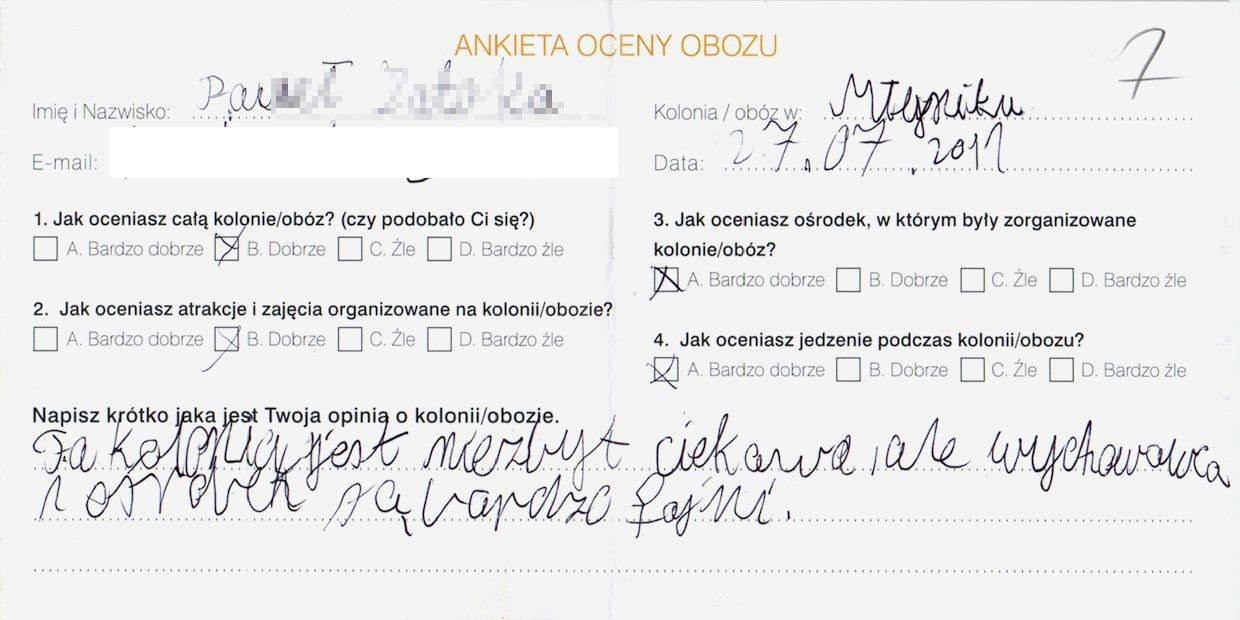 ANKIETA OCENY OBOZU
7
Imię i Nazwisko:
Kolonia / obóz w: Młyniku
E-mail:
Data: 27.07.2011
1. Jak oceniasz całą kolonie/obóz? (czy podobało Ci się?)
A. Bardzo dobrze B. Dobrze C. Źle D. Bardzo źle
2. Jak oceniasz atrakcje i zajęcia organizowane na kolonii/obozie?
A. Bardzo dobrze B. Dobrze C. Źle D. Bardzo źle
3. Jak oceniasz ośrodek, w którym były zorganizowane
kolonie/obóz?
A. Bardzo dobrze B. Dobrze C. Źle D. Bardzo źle
4. Jak oceniasz jedzenie podczas kolonii/obozu?
A. Bardzo dobrze B. Dobrze C. Źle D. Bardzo źle
Napisz krótko jaka jest Twoja opinia o kolonii/obozie.
Ta kolonia jest niezbyt ciekawa, ale wychowawca
i ośrodek są bardzo fajni.